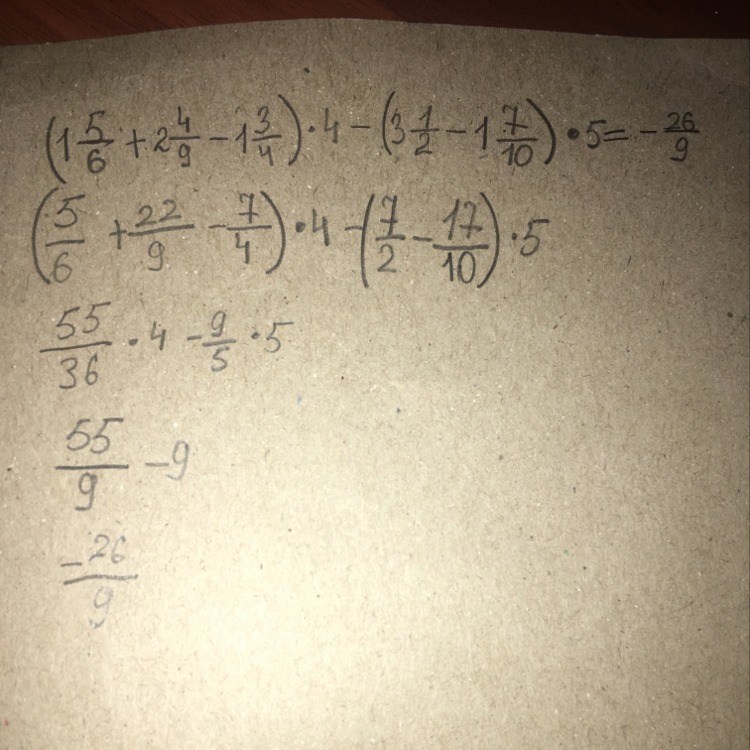 (1 5/6 + 2 4/9 - 1 3/4) · 4 - (3 1/2 - 1 7/10) · 5 = - 26/9
(5/6 + 22/9 - 7/4) · 4 - (7/2 - 17/10) · 5
55/36 · 4 - 9/5 · 5
55/9 - 9
-26/9